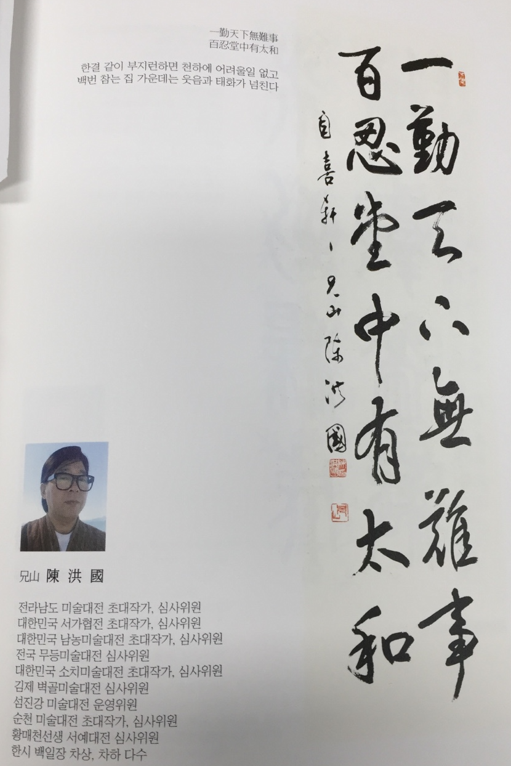 一勤天下無難事
百忍堂中有太和
한결 같이 부지런하면 천하에 어려울일 없고
백번 참는 집 가운데는 웃음과 태화가 넘친다
一勤天下無難事
百忍堂中有太和
自喜軒、兄山 陳洪國
兄山 陳洪國
전라남도 미술대전 초대작가, 심사위원
대한민국 서가협전 초대작가, 심사위원
대한민국 남농미술대전 초대작가, 심사위원
전국 무등미술대전 심사위원
대한민국 소치미술대전 초대작가, 심사위원
김제 벽골미술대전 심사위원
섬진강 미술대전 운영위원
순천 미술대전 초대작가, 심사위원
황매천선생 서예대전 심사위원
한시 백일장 차상, 차하 다수